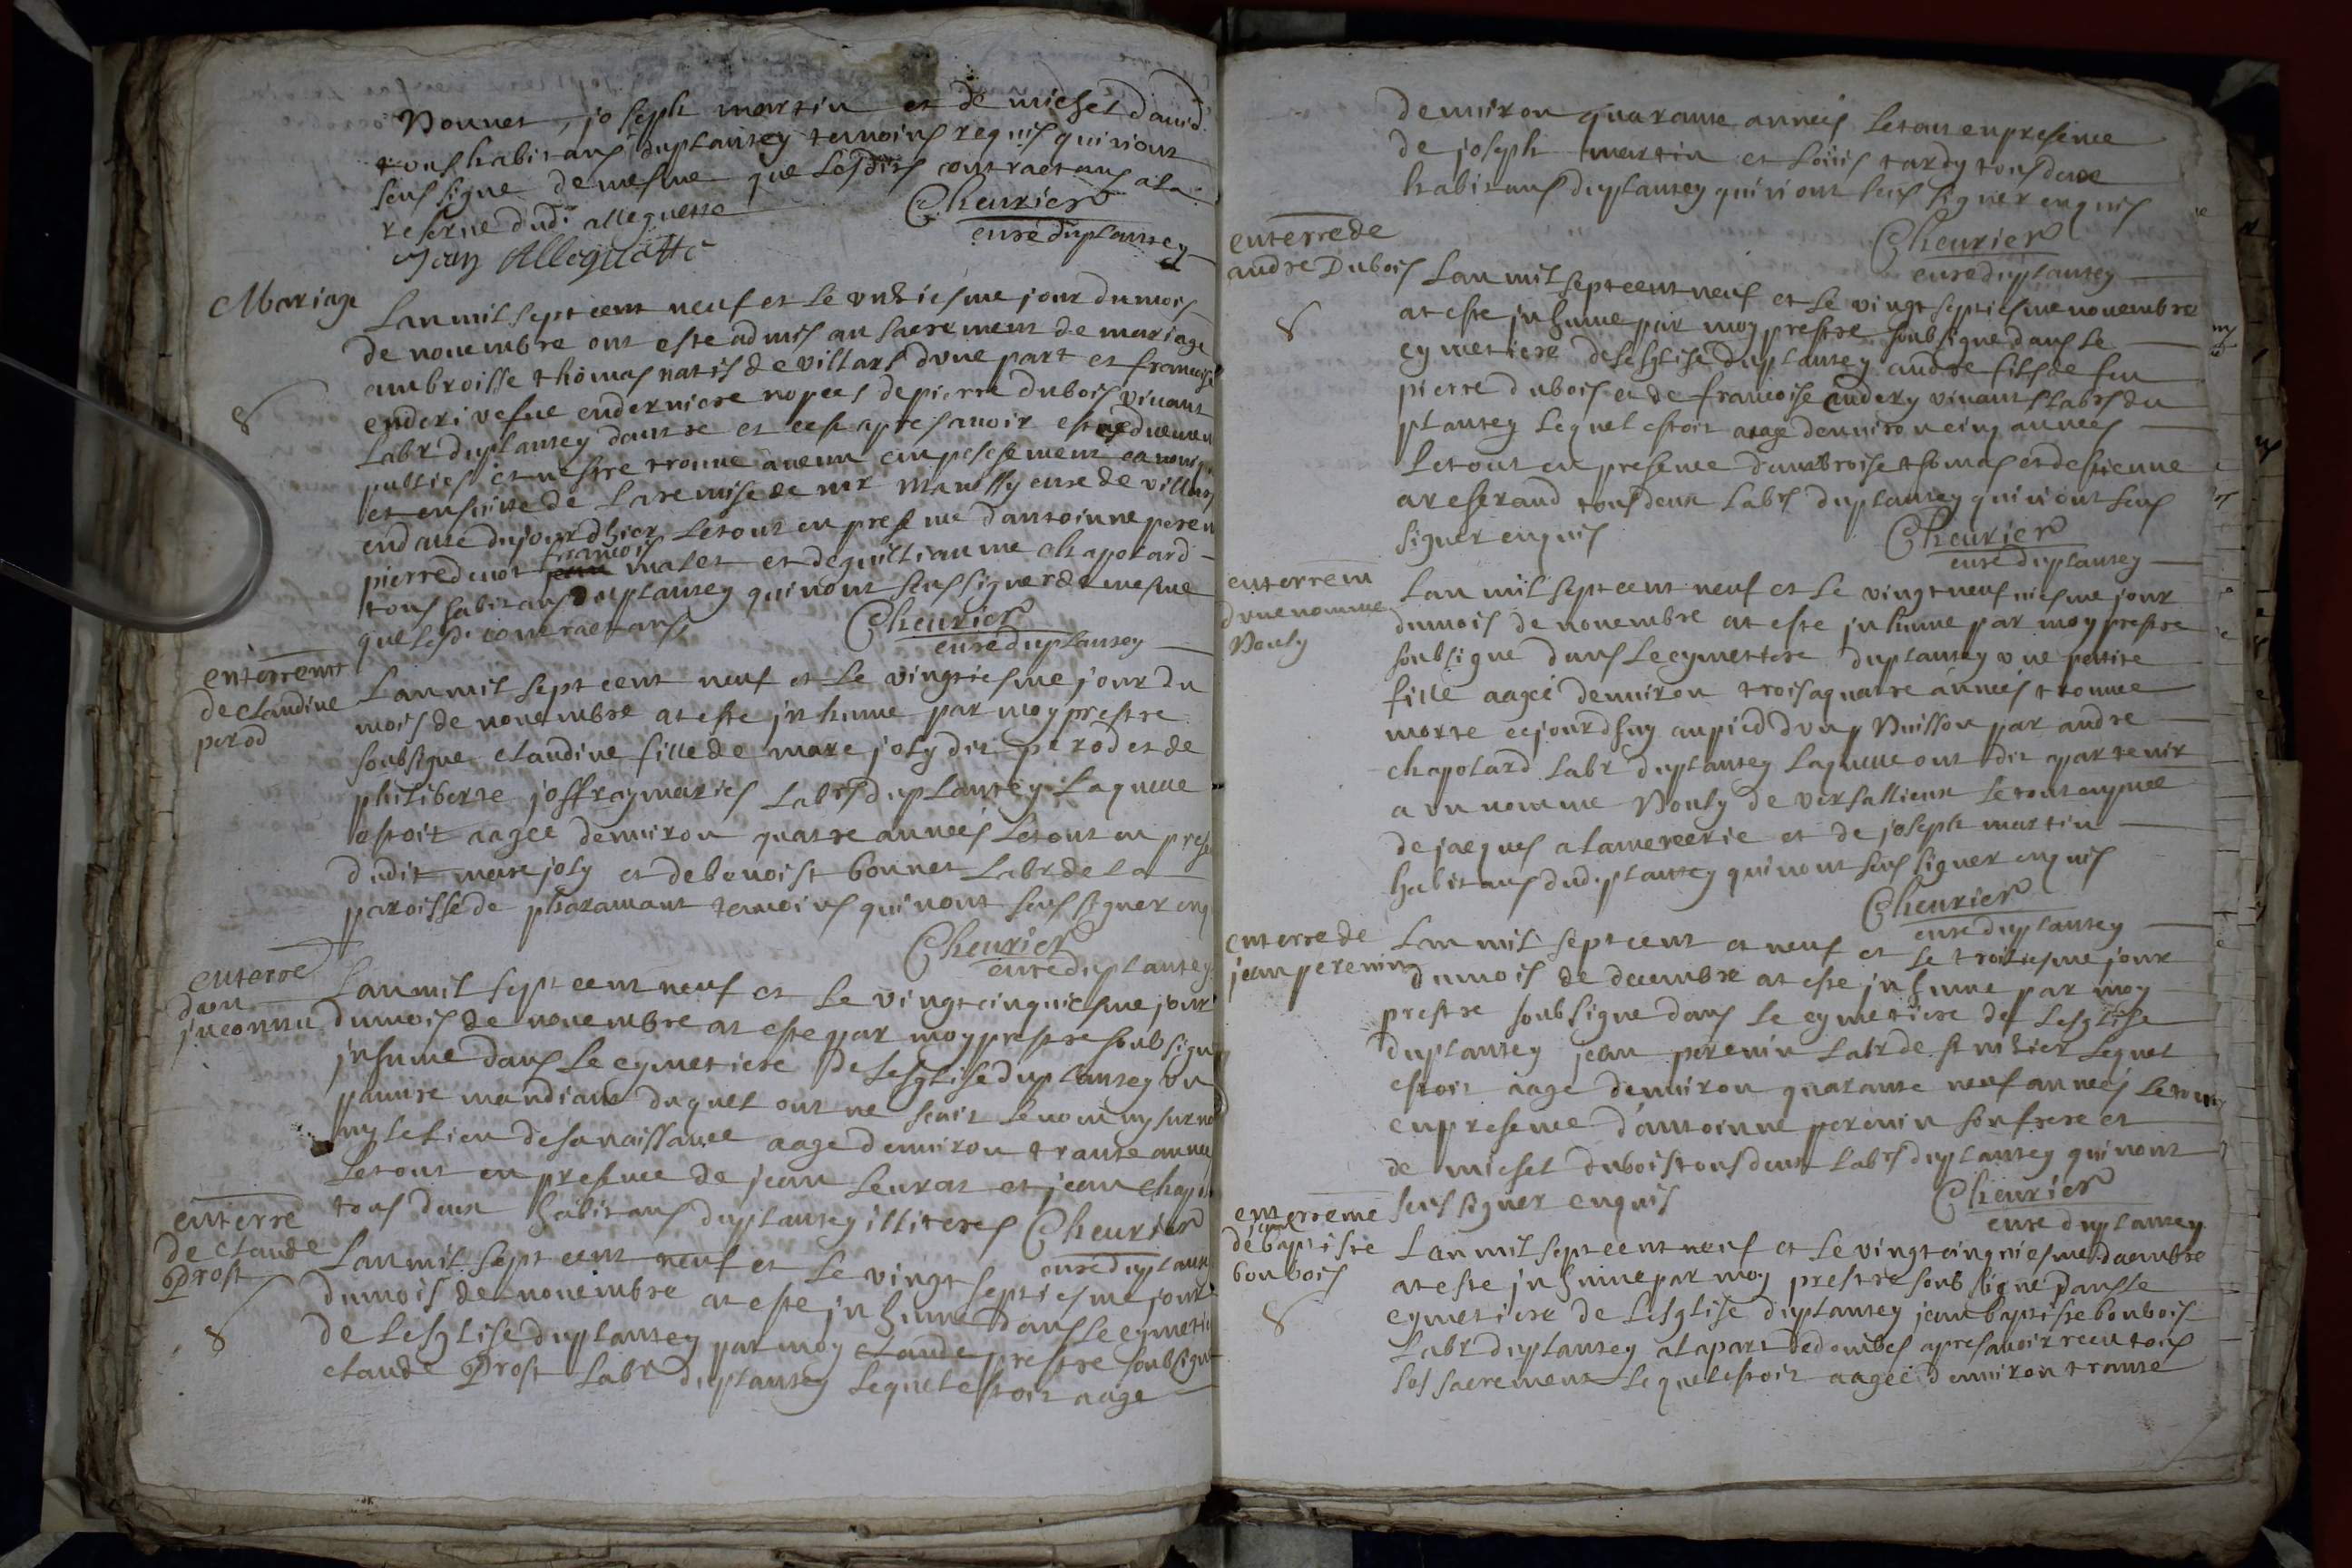 Bonnet, joseph martin et de michel david
tous habitans duplantey temoins requis qui nont
sceu signe de mesme que lesdits contractans a la
reserve dudt allequette
Jean Allequatte
Cheurier
curé duplantey
Mariage
Lan mil sept cent neuf et le unziesme jour du mois
de novembre ont este admis au sacrement de mariage
ambroisse thomas natif de villars dune part et francoise
enderi vefue en derniere nopces de pierre dubois vivant
Labr duplantey dautre et ce apres avoir este duement
publies et nestre trouve aucun empeschement canoniq
et ensuitte de la remise de mr curé de villars
en datte du jourdhier Le tout en presence dantoinne peren
pierre denot francois malet et de guilliaume chapotard
tous habitans duplantey qui nont sceu signer de mesme
que lesd. contractans
Cheurier
curé duplantey
enterremt
de claudine
perod
Lan mil sept cent neuf et le vingtiesme jour du
mois de novembre at este inhume par moy prestre
soubsigne claudine fille de marc joly dit perod et de
philiberte joffray maries Labrs duplantey Laquelle
estoit aagee denviron quatre années Le tout en prese
dudit marc joly et de benoist bonnet Labr de la
paroisse de pharamant temoins qui nont sceu signer enq
Cheurier
curé duplantey
enterre
dun
inconnu
Lan mil sept cent neuf et le vingtcinquiesme jour
du mois de novembre at este par moy prestre soubsigne
inhume dans le cymetiere de Lesglise duplantey un
pauvre mandiant duquel ont ne scait le nom ny surno
ny le lieu de sa naissance aage denviron trante annees
Le tout en presence de jean leurat et jean chapo
tous deux habitans duplantey illiteres
Cheurier
curé duplantey
enterre
de claude
Prost
Lan mil sept cent neuf et le vingt septiesme jour
du mois de novembre at este inhume dans le cymetie
de Lesglise duplantey par moy claude prestre soubsigne
claude Prost Labr duplantey lequel estoit aage
denviron quarante années le tout en presence
de joseph martin et Loüis tardy tous deux
habitans duplantey qui nont sceu signer enquis
Cheurier
curé duplantey
enterre de
andre Dubois
Lan mil sept cent neuf et le vingt septiesme novembre
at este inhume par moy prestre soubsigne dans le
cymetiere de Lesglise duplantey andre fils de feu
pierre dubois et de francoise endery vivant Labrs du
plantey Lequel estoit aage denviron cinq années
Le tout en presence dambroise thomas et destienne
areserand tous deux Labrs duplantey qui nont sceu
signer enquis
Cheurier
curé duplantey
enterrem
dune nomme
Bouly
Lan mil sept cent neuf et le vingt neufviesme jour
du mois de novembre at este inhume par moy prestre
soubsigne dans le cymettere duplantey une petite
fille aagée denviron trois a quatre années trouvee
morte cejourdhuy au pied dung Buisson par andre
chapotard Labr duplantey Laquelle ont dit apartenir
a un nomme Bouly de versallieux le tout en pnce
de jacques alamercerie et de joseph martin
habitans dud. plantey qui nont sceu signer enquis
Cheurier
curé duplantey
enterre de
jean perenin
Lan mil sept cent et neuf et le troisiesme jour
du mois de decembre at este inhume par moy
prestre soubsigne dans le cymetiere de Lesglise
duplantey jean perenin Labr de Lequel
estoit aage denviron quarante neuf années Le tout
en presence d'antoinne perenin son frere et
de michel dubois tous deux Labrs duplantey qui nont
sceu signer enquis
Cheurier
curé duplantey
enterreme
de jean
baptiste
bonbois
Lan mil sept cent neuf et le vingt cinquiesme decembre
at este inhume par moy prestre soubsigne dans le
cymetiere de Lesglise duplantey jean baptiste bonbois
Labr duplantey a la part de dombes apres avoir receu tous
les sacrements Lequel estoit aagée denviron trante